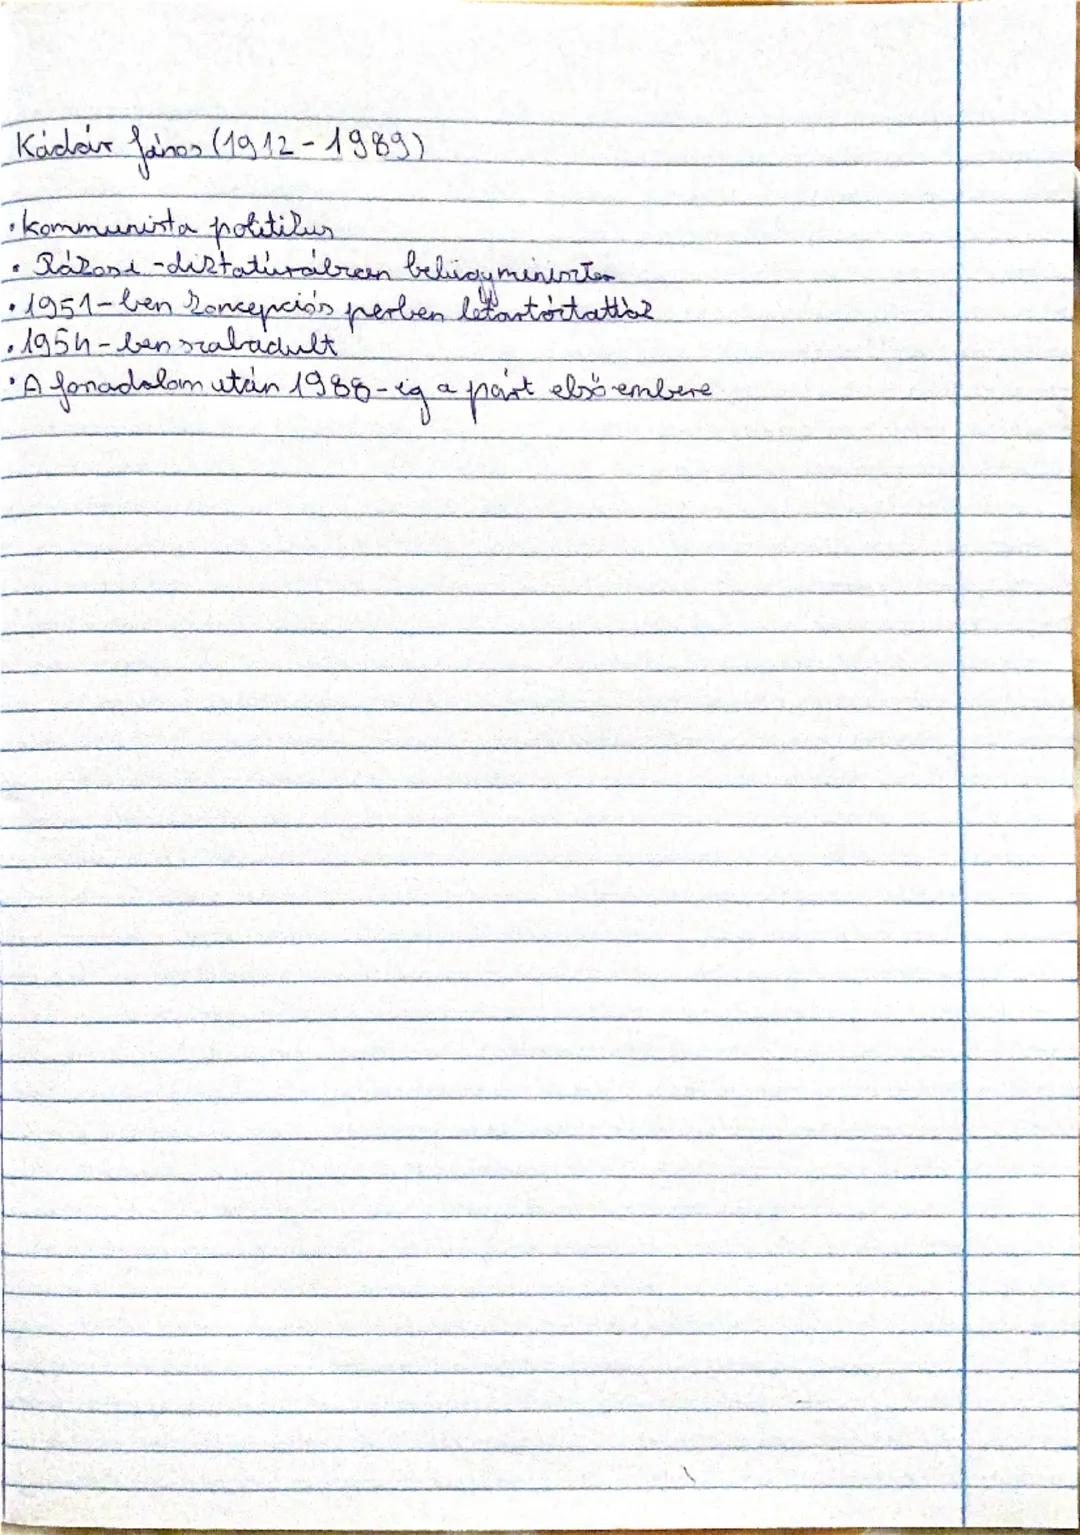 Kádár János (1912-1989)
• kommunista politikus
• Rákosi-diktatúrában belügyminiszter
• 1951-ben koncepciós perben letartóztatták
• 1954-ben szabadult
• A forradalom után 1988-ig a párt első embere